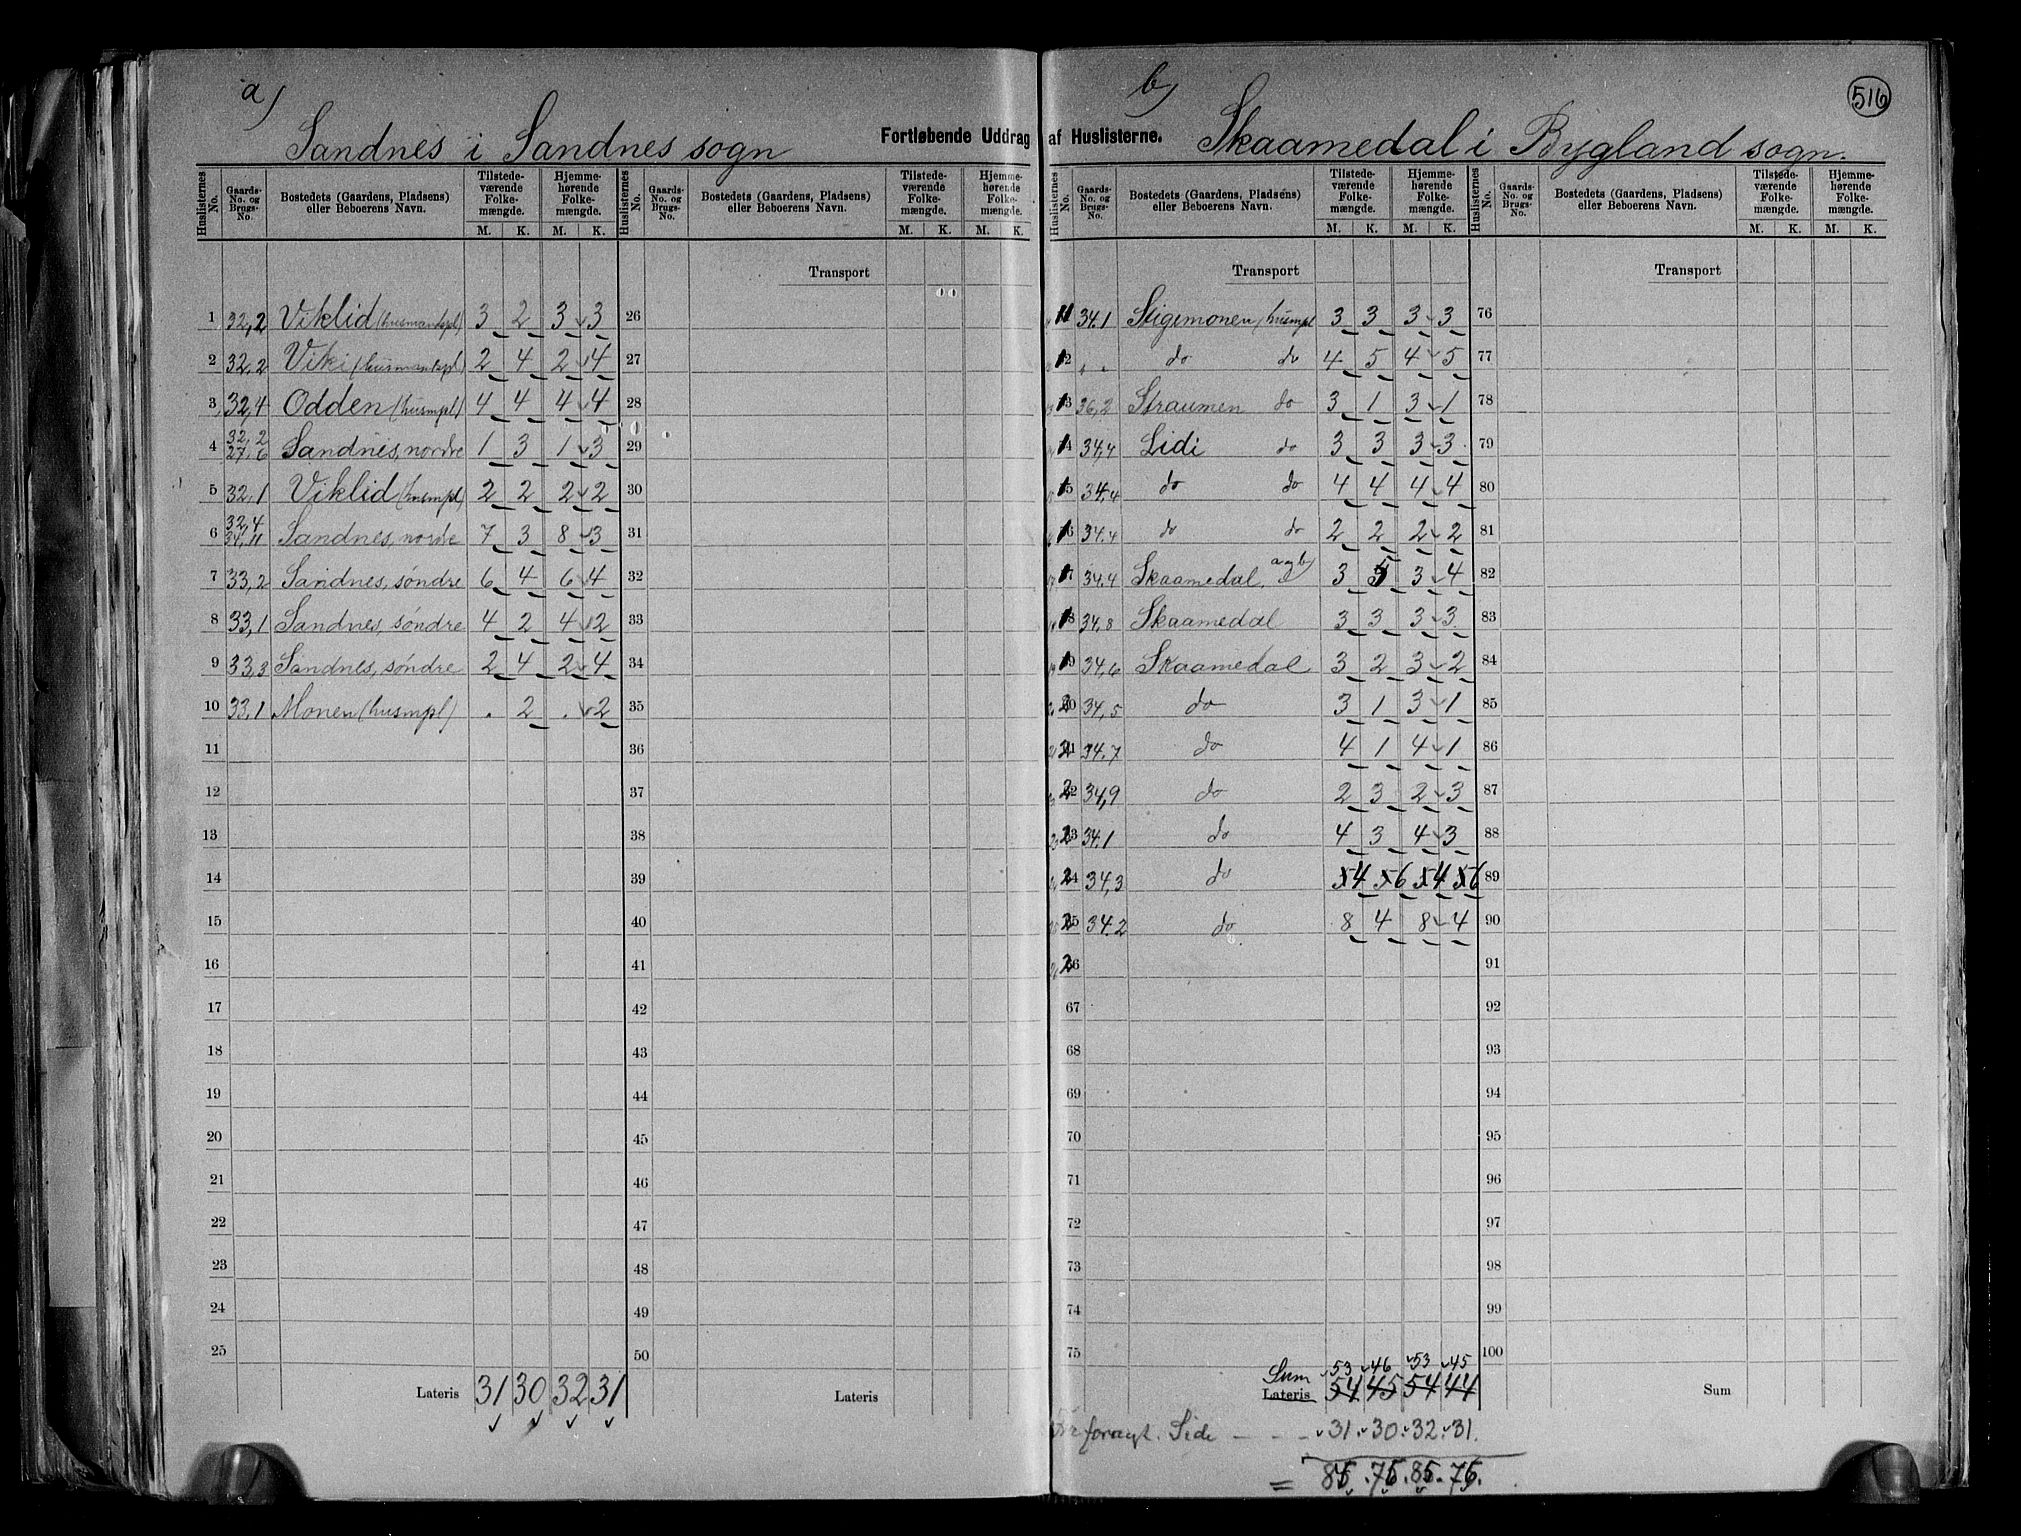 a)
Sandnes i Sandnes sogn
Fortløbende Uddrag
Huslisternes No. Gaards-No. og Brugs-No. Bostedets (Gaardens, Pladsens) eller Beboerens Navn. Tilstedeværende Folkemængde. Hjemmehørende Folkemængde. Huslisternes No. Gaards-No. og Brugs-No. Bostedets (Gaardens, Pladsens) eller Beboerens Navn. Tilstedeværende Folkemængde. Hjemmehørende Folkemængde.
M. K. M. K. M. K. M. K.
Transport
1 32,2 Viklid (husmandspl) 3 2 3 3 26
2 32,2 Viki (husmandspl) 2 4 2 4 27
3 32,4 Odden (husmpl) 4 4 4 4 28
4 32,2 27,6 Sandnes, nordre 1 3 1 3 29
5 32,1 Viklid (husmpl) 2 2 2 2 30
6 32,4 34,11 Sandnes, nordre 7 3 8 3 31
7 33,2 Sandnes, søndre 6 4 6 4 32
8 33,1 Sandnes, søndre 4 2 4 2 33
9 33,3 Sandnes, søndre 2 4 2 4 34
10 33,1 Monen (husmpl) . 2 . 2 35
11 36
12 37
13 38
14 39
15 40
16 41
17 42
18 43
19 44
20 45
21 46
22 47
23 48
24 49
25 50
Lateris 31 30 32 31 Lateris
b)
516
af Huslisterne.
Skaamedal i Bygland sogn.
Huslisternes No. Gaards-No. og Brugs-No. Bostedets (Gaardens, Pladsens) eller Beboerens Navn. Tilstedeværende Folkemængde. Hjemmehørende Folkemængde. Huslisternes No. Gaards-No. og Brugs-No. Bostedets (Gaardens, Pladsens) eller Beboerens Navn. Tilstedeværende Folkemængde. Hjemmehørende Folkemængde.
M. K. M. K. M. K. M. K.
Transport Transport
11 34.1 Stigemonen (husmpl 3 3 3 3 76
12 " " do do 4 5 4 5 77
13 36,2 Straumen do 3 1 3 1 78
14 34,4 Lidi do 3 3 3 3 79
15 34,4 do do 4 4 4 4 80
16 34.4 do do 2 2 2 2 81
17 34.4 Skaamedal, a og b 3 5 3 4 82
18 34.8 Skaamedal 3 3 3 3 83
19 34,6 Skaamedal 3 2 3 2 84
20 34,5 do 3 1 3 1 85
21 34.7 do 4 1 4 1 86
22 34,9 do 2 3 2 3 87
23 34.1 do 4 3 4 3 88
24 34,3 do 5 4 5 6 5 4 5 6 89
25 34.2 do 8 4 8 4 90
26 91
67 92
68 93
69 94
70 95
71 96
72 97
73 98
74 99
75 100
Sum 53 46 53 45
Lateris 54 45 54 44 Sum
foragt. Side - - - 31. 30. 32. 31.
= 85. 75. 85. 75.